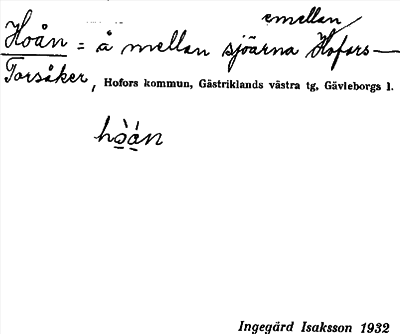 emellan
Hoån = å mellan sjöarna Hofors—
Torsåker, Hofors kommun, Gästriklands västra tg, Gävleborgs l.
hòán
Ingegärd Isaksson 1932